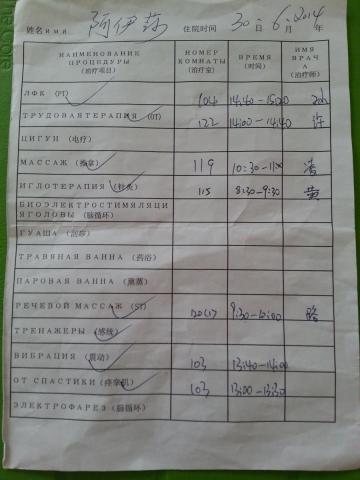 姓名 ИМИ 阿伊莎 住院时间 30日 6月 2014
НАИМЕНОВАНИЕ ПРОЦЕДУРЫ (治疗项目) НОМЕР КОМНАТЫ (治疗室) ВРЕМЯ (时间) ИМЯ ВРАЧА (治疗师)
ЛФК (PT) 104 14:40-15:20
ТРУДОВАЯТЕРАПИЯ (OT) 122 14:00-14:40 许
ЦИГУН (电疗)
МАССАЖ (推拿) 119 10:30-11:00 潘
ИГЛОТЕРАПИЯ (针灸) 115 8:30-9:30 黄
БИОЭЛЕКТРОСТИМЯЛЯЦИ
ЯГОЛОВЫ (脑循环)
ГУАША (刮痧)
ТРАВЯНАЯ ВАННА (药浴)
ПАРОВАЯ ВАННА (熏蒸)
РЕЧЕВОЙ МАССАЖ (ST) 9:30-10:00 路
ТРЕНАЖЕРЫ (感统)
ВИБРАЦИЯ (震动) 103 13:40-14:00
ОТ СПАСТИКИ (痉挛机) 103 13:00-13:30
ЭЛЕКТРОФАРЕЗ (脑循环)